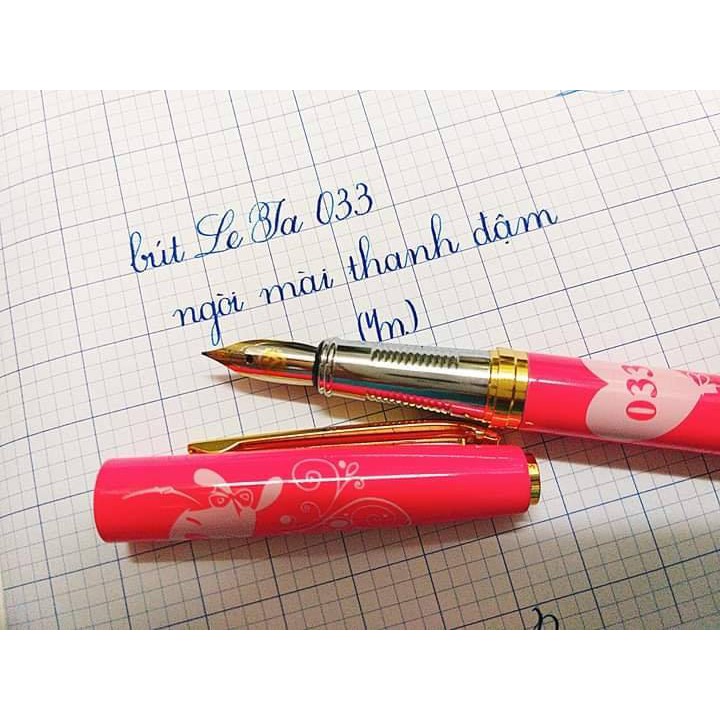 bút Le Ta 033
ngòi mài thanh đậm
033